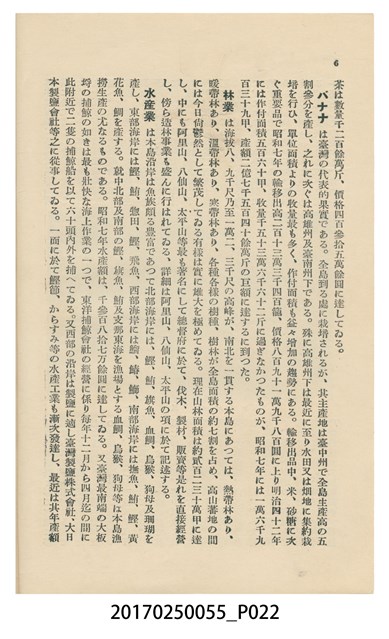 6
茶は數量千二百餘萬斤、價格四百參拾五萬餘圓に達してゐる。
バナナ は臺灣の代表的果實である。全島到る處に栽培されるが、其主產地は臺中州で全島生產高の五
割參分を產し、之れに次ぐは高雄州及臺南州下である。殊に高雄州下は最近に至り水田又は畑地に集約栽
培を行ひ、單位面積よりの收量最も多く、作付面積も益々增加の趨勢にある。輸移出品中、米、砂糖に次
ぐ重要品で昭和七年の輸移出高二百十三萬三千四百籠、價格八百九十一萬九千八百圓に上り明治四十二年
には作付面積五百六十甲、收量千五十三萬六千六十二斤に過ぎなかつたものが、昭和七年には一萬六千九
百三十九甲、產額二億七千五百四十餘萬斤の巨額に達するに到つた。
林業 は海拔八、九千尺乃至一萬二、三千尺の高峰が、南北を一貫する本島にあつては、熱帶林あり、
暖帶林あり、溫帶林あり、寒帶林あり、各種各樣の樹種、樹林が全島面積の約七割を占め、高山蕃地の間
には今日尙鬱然として繁茂してゐる有樣は實に雄大を極めてゐる。現在山林面積は約貳百二三十萬甲に達
し、中にも阿里山、八仙山、太平山等最も著名にして總督府に於て、伐木、製材、販賣等是れを直接經營
し、傍ら造林事業も盛んに行はれてゐる。詳細は阿里山、八仙山、太平山の項に於て記述する。
水產業 は本島沿岸は魚族頗る豐富であつて北部海岸には、鰹、鮪、旗魚、血鯛、烏猴、狗母及珊瑚を
產し、東部海岸には鰹、鮪、惣田、鰹、飛魚、西部海岸には鯛、鰆、鰤、南部海岸には撫魚、鮪、鰹、黃
花魚、鯛を產する。就中北部及南部の鰹、旗魚、鮪及支那東海を漁場とする血鯛、烏猴、狗母等は本島漁
撈生產の尤なるものである。昭和七年水產額は、千參百八拾七萬餘圓に達してゐる。又臺灣最南端の大板
埒の捕鯨の如きは最も壯快な海上作業の一つで、東洋捕鯨會社の經營に係り每年十二月から四月迄の間に
此附近で二隻の捕鯨船を以て六十頭內外を捕へてゐる。又西部の沿岸は製鹽に適し臺灣製鹽株式會社、大日
本製鹽會社等之に從事してゐる。一面に於て鰹節、からすみ等の水產工業も漸次發達し、最近は其年產額
20170250055_P022